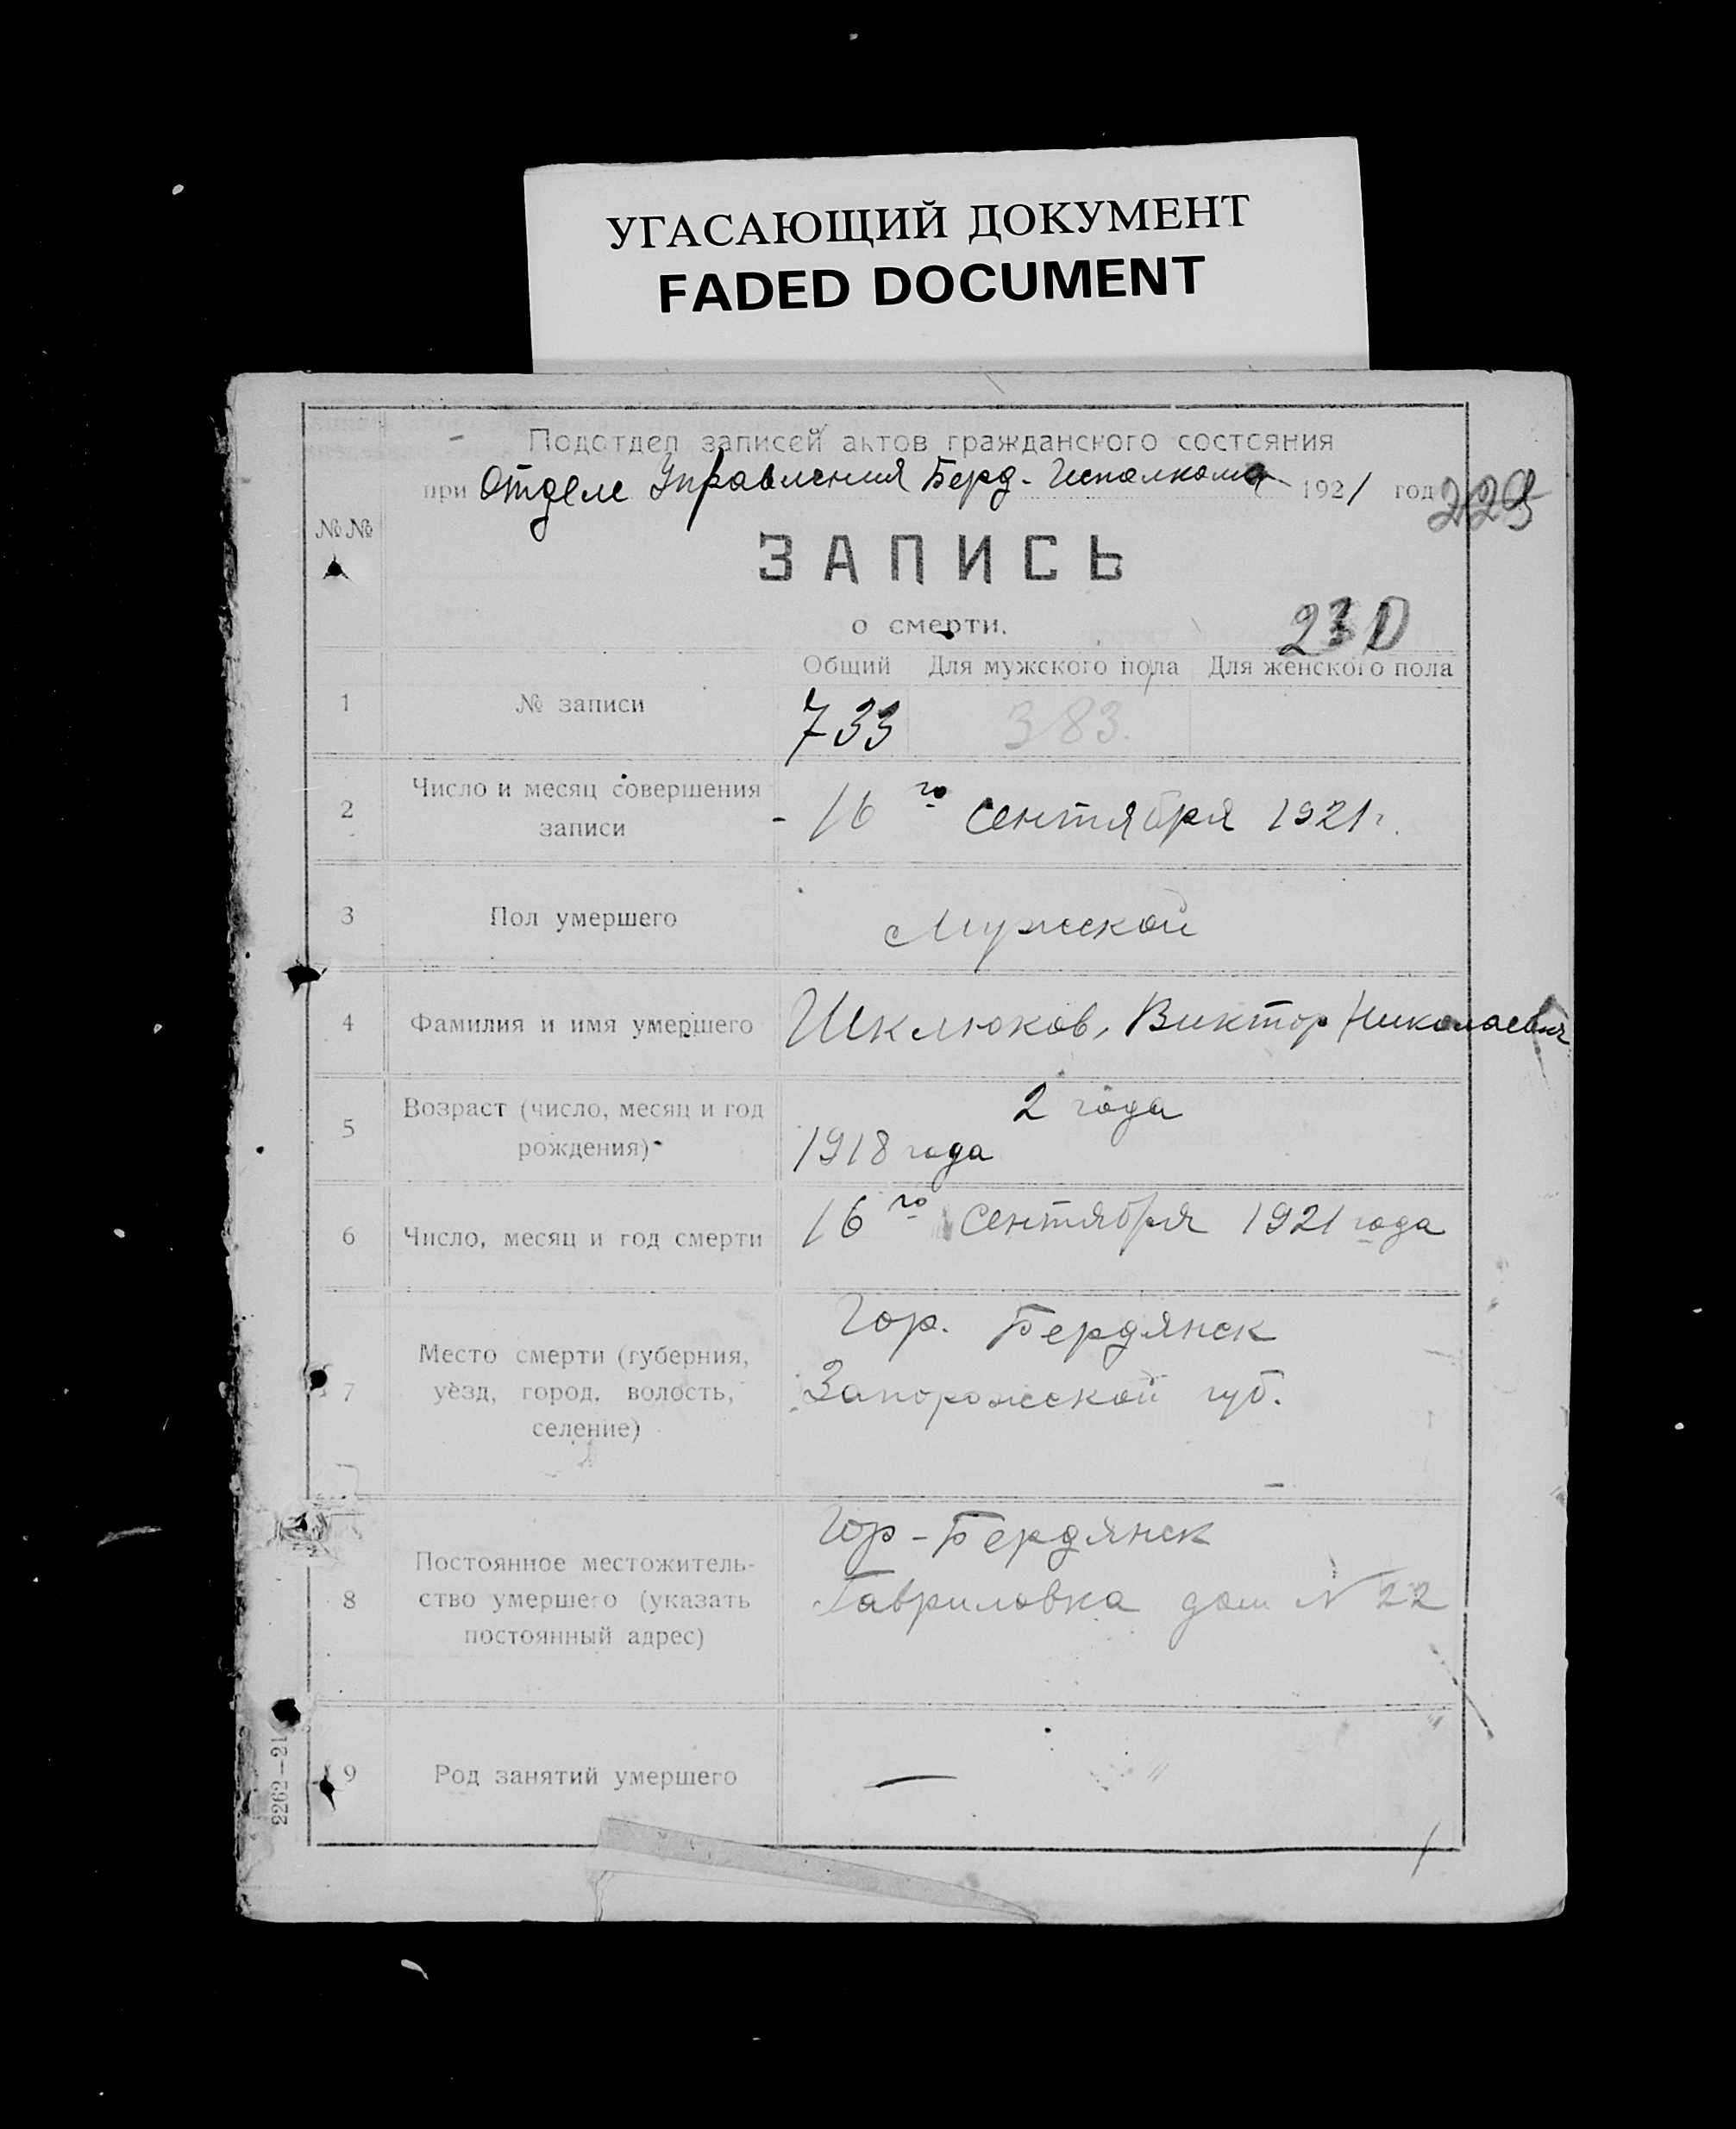 УГАСАЮЩИЙ ДОКУМЕНТ
FADED DOCUMENT
Подотдел записей актов гражданского состояния
при Отделе Управления Берд. Исполкома 1921 год
229
№№
ЗАПИСЬ
о смерти.
230
Общий Для мужского пола Для женского пола
1 № записи 733 383.
2 Число и месяц совершения
записи
16го Сентября 1921 г.
3 Пол умершего Мужской
4 Фамилия и имя умершего Шклюков, Виктор Николаевич
5 Возраст (число, месяц и год
рождения)
2 года
1918 года
6 Число, месяц и год смерти 16го Сентября 1921 года
7 Место смерти (губерния,
уезд, город, волость,
селение)
Гор. Бердянск
Запорожской губ.
8 Постоянное местожитель-
ство умершего (указать
постоянный адрес)
Гор-Бердянск
Гавриловка дом № 22
9 Род занятий умершего —
2262—21